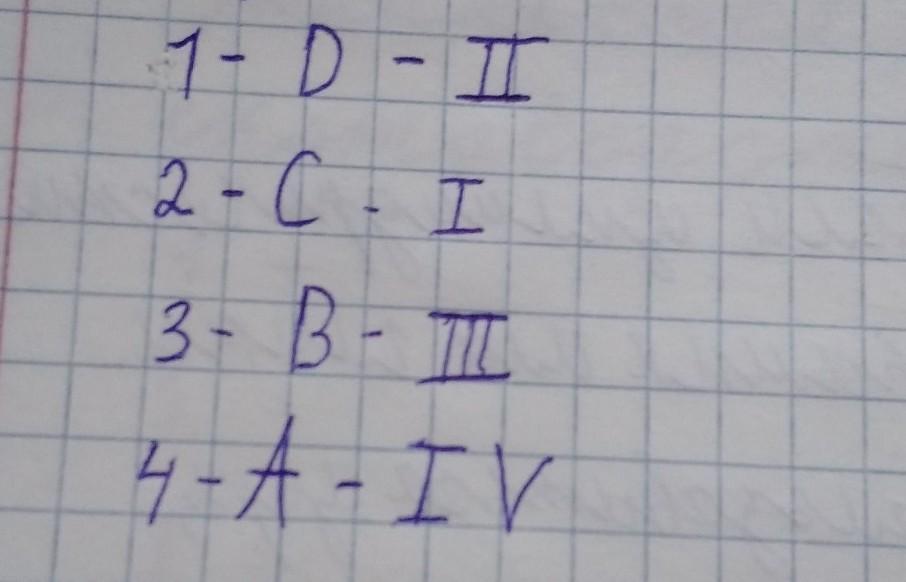 1 - D - II
2 - C - I
3 - B - III
4 - A - IV